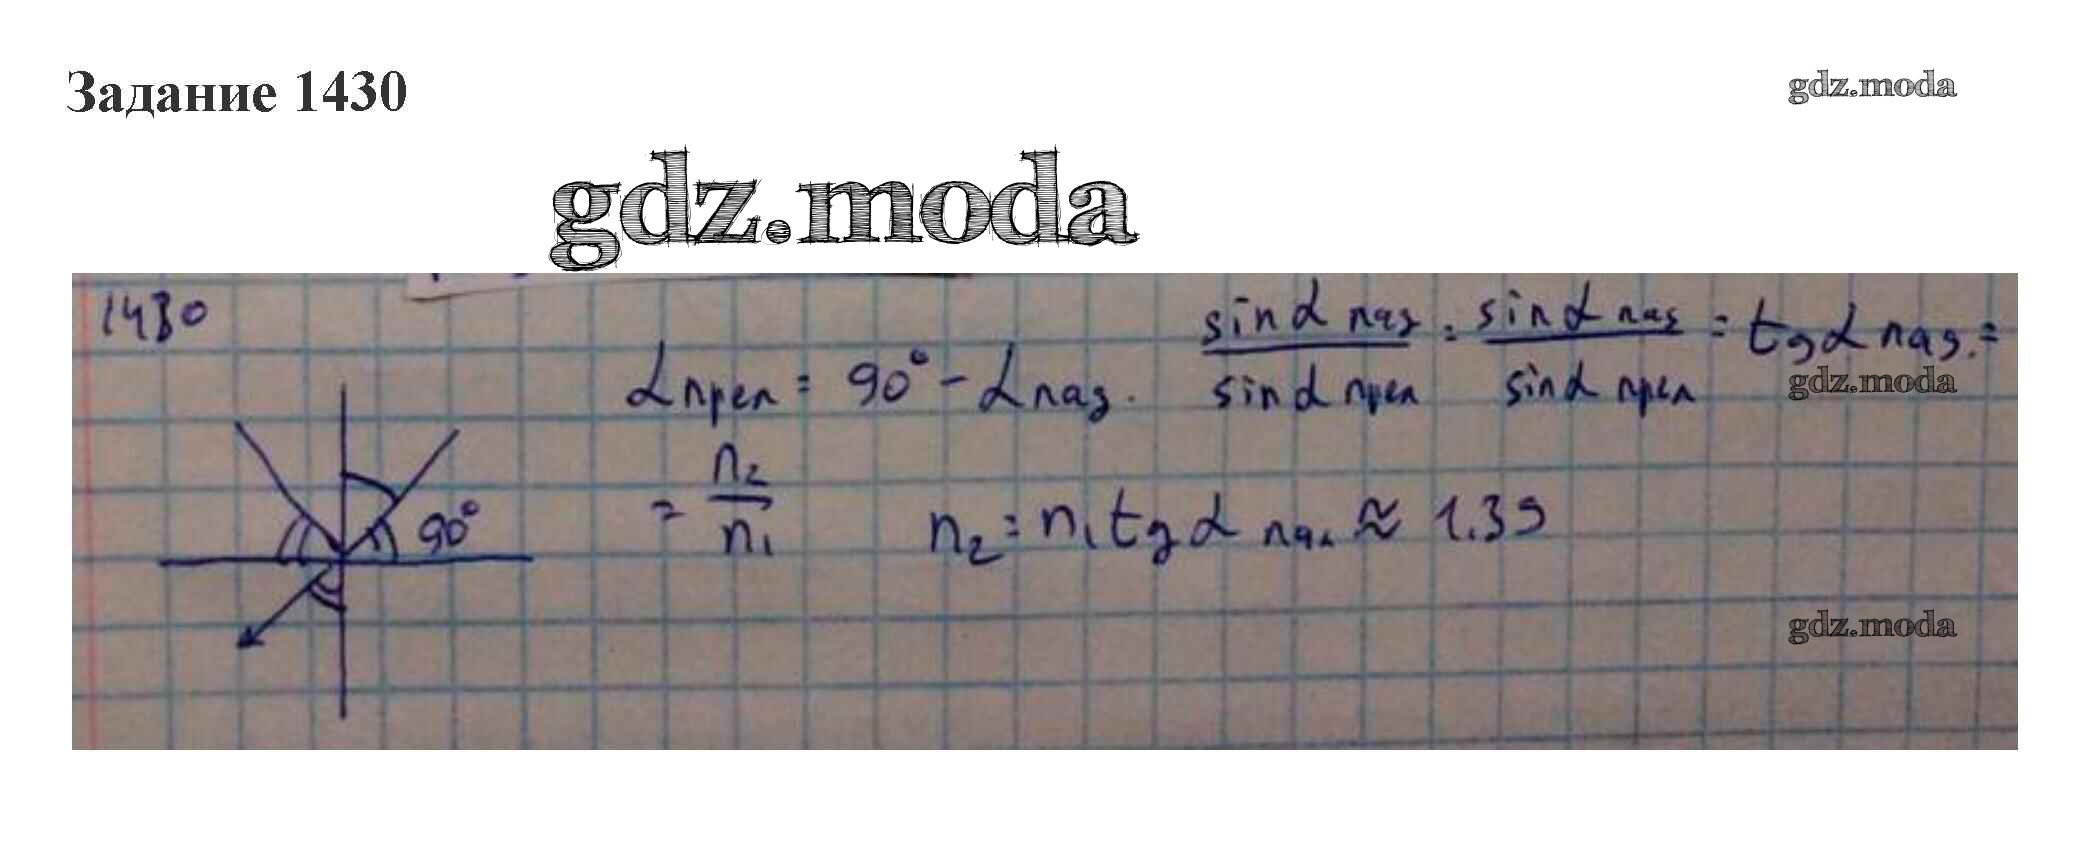 Задание 1430
gdz.moda
gdz.moda
1430
α прел = 90° - α пад. sin α пад / sin α прел = sin α пад / sin α прел = tg α пад. =
gdz.moda
= n₂ / n₁ n₂ = n₁ tg α пад ≈ 1.39
90°
gdz.moda